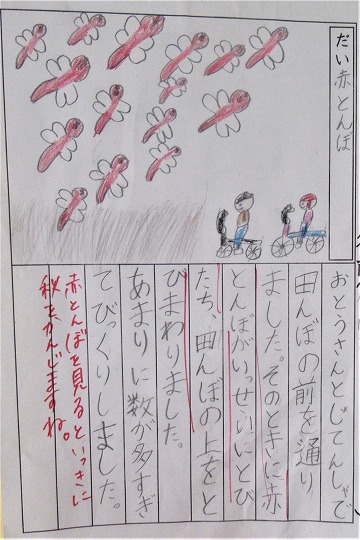 だい赤とんぼ
おとうさんとじてんしゃで
田んぼの前を通り
ました。そのときに赤
とんぼがいっせいにとび
たち、田んぼの上をと
びまわりました。
あまりに数が多すぎ
てびっくりしました。
赤とんぼを見るといっきに
秋をかんじますね。